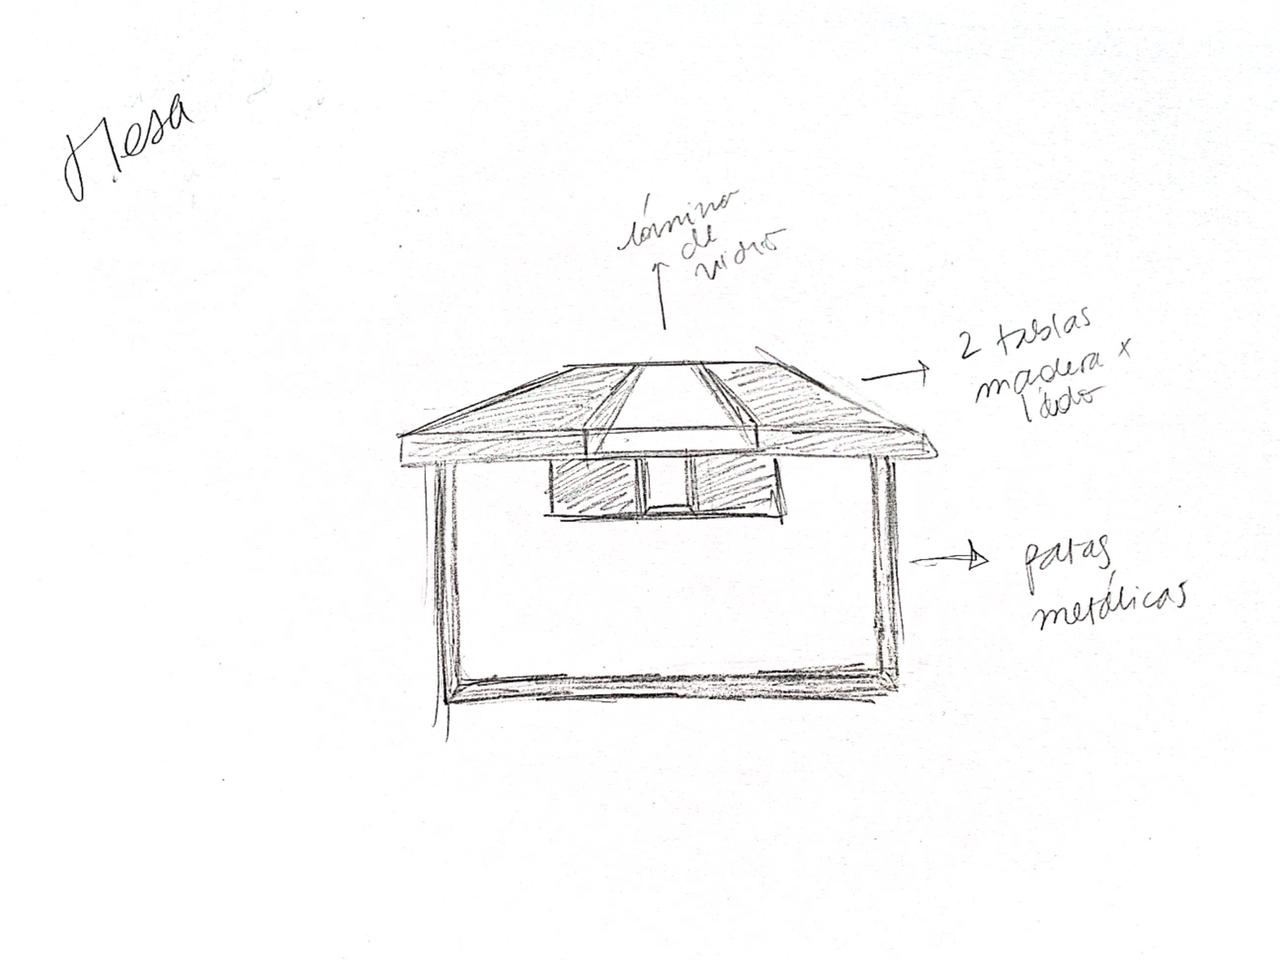 Mesa
lámina
de
vidrio
2 tablas
madera x
lado
patas
metálicas